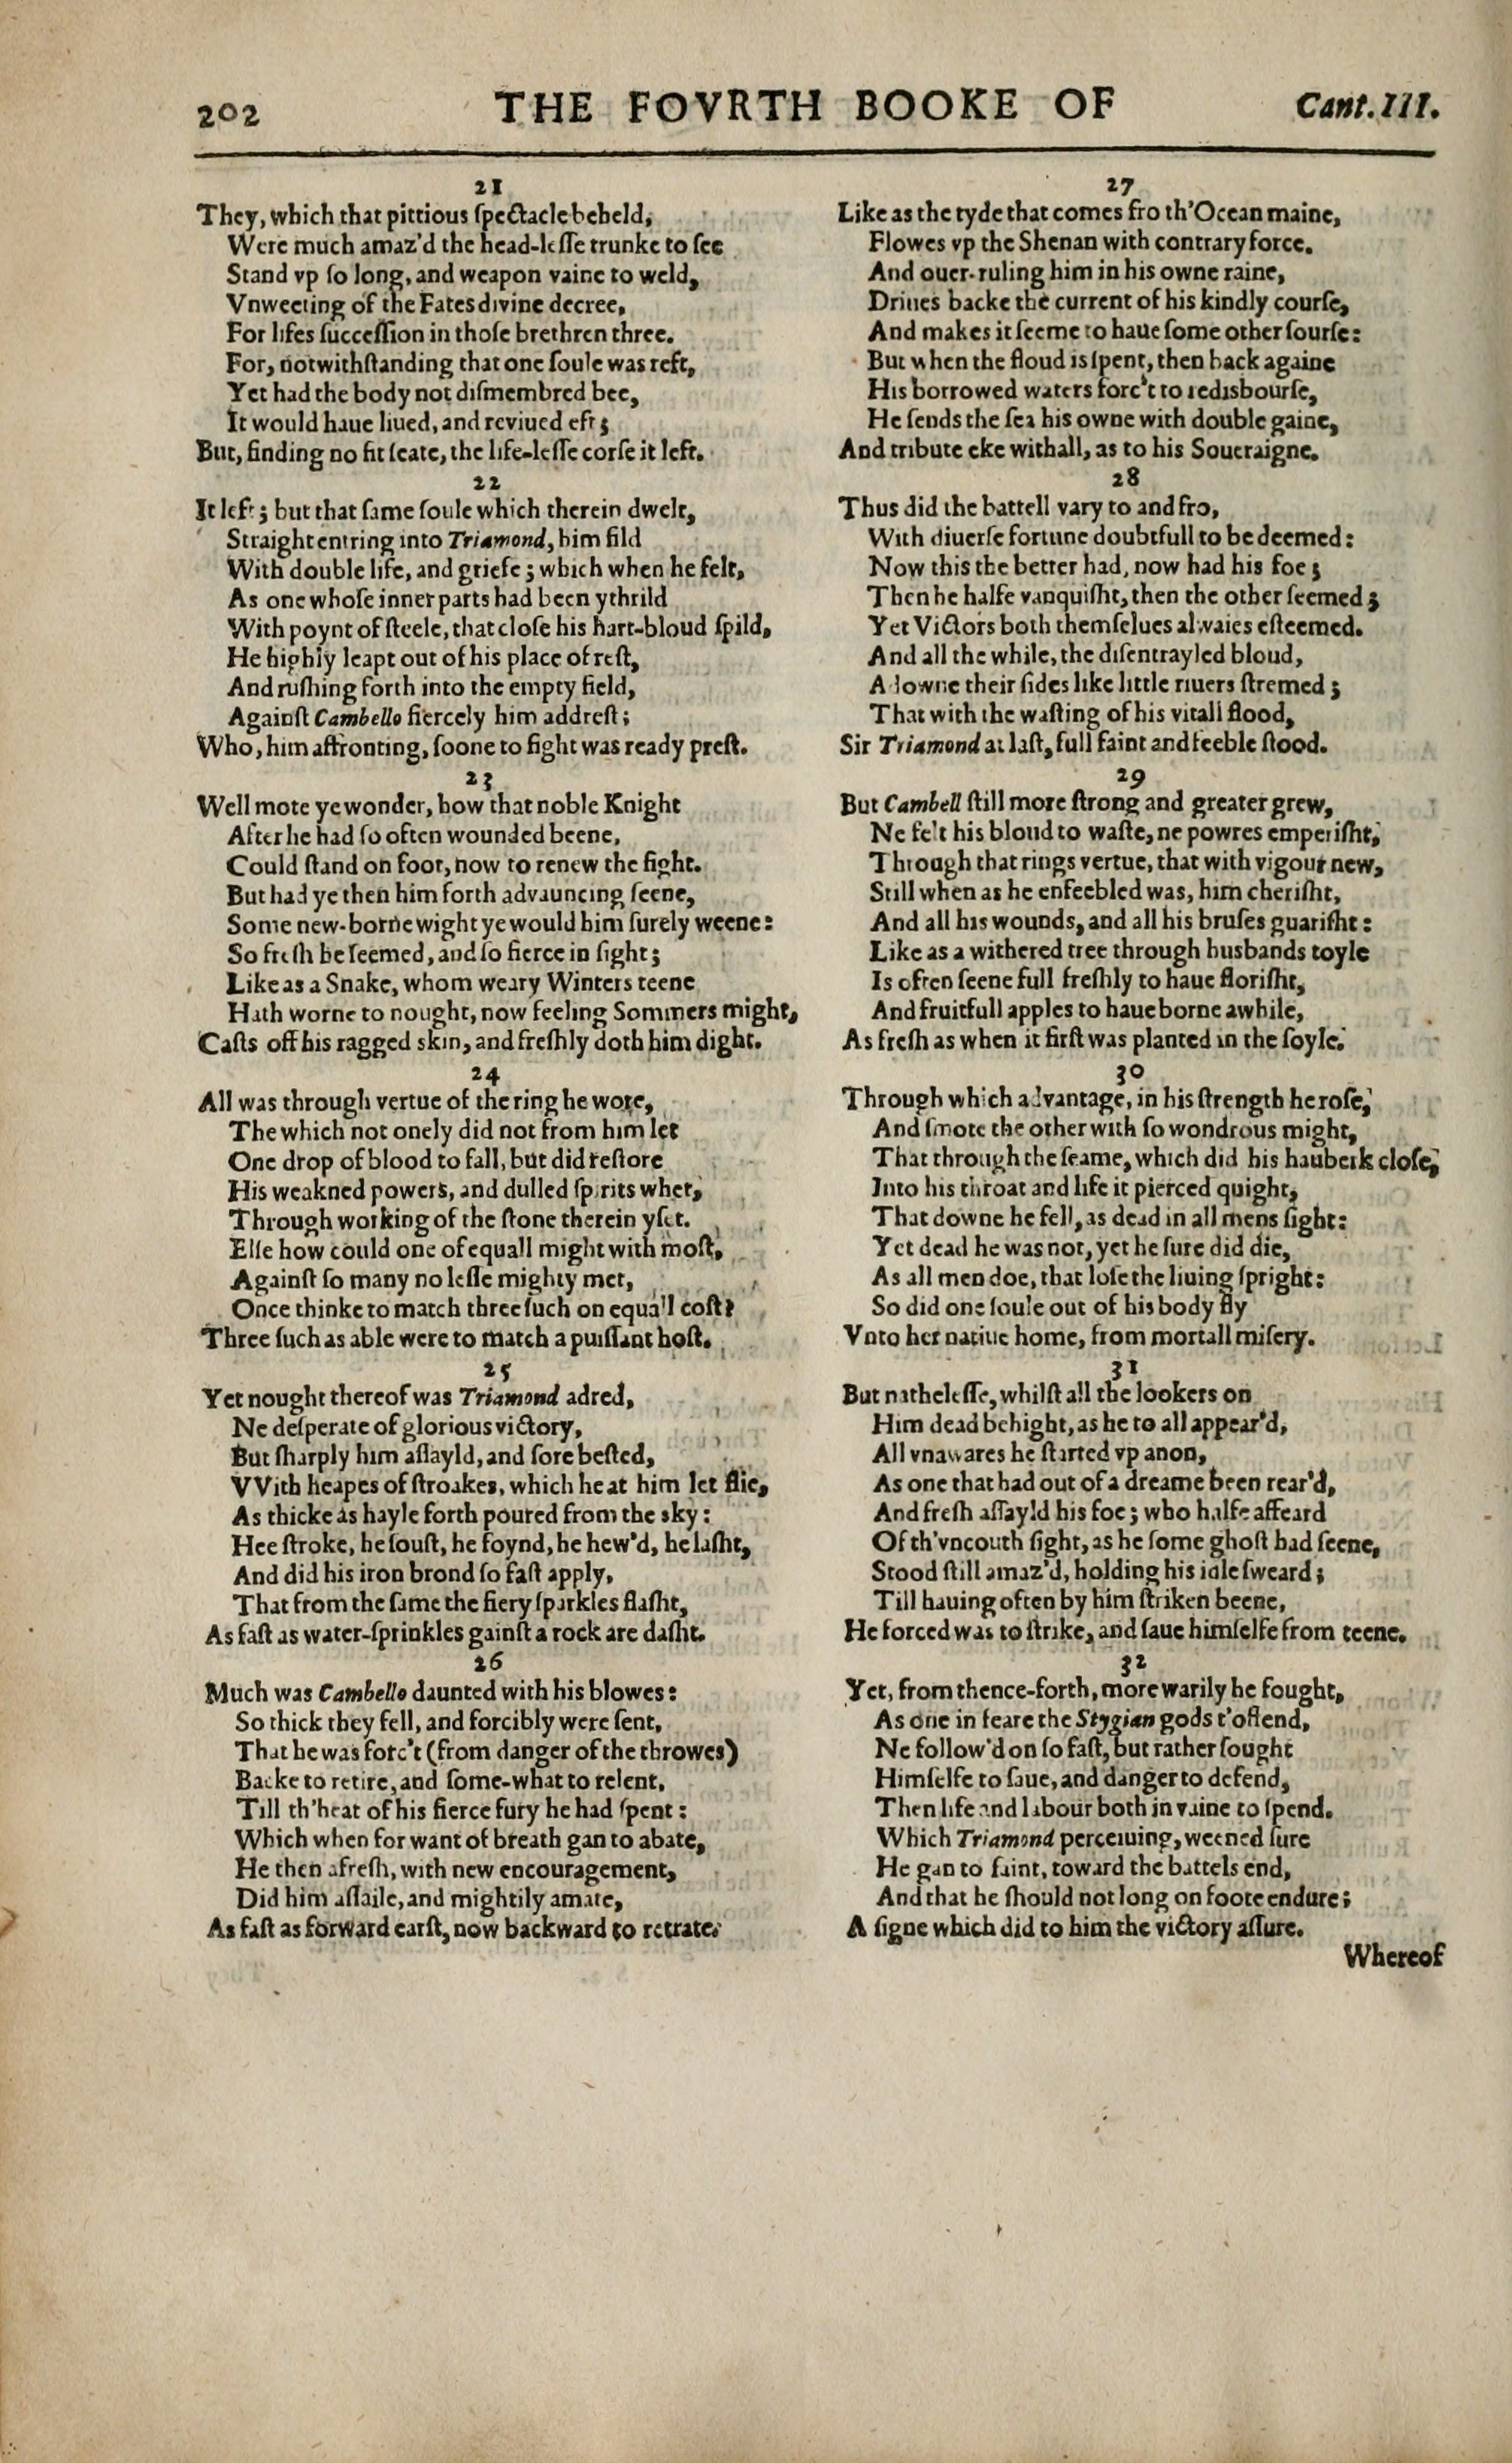 202 THE FOVRTH BOOKE OF Cant.III.
21
They, which that pittious ſpectacle beheld,
Were much amaz'd the head-leſſe trunke to ſee
Stand vp ſo long, and weapon vaine to weld,
Vnweeting of the Fates divine decree,
For lifes ſucceſſion in thoſe brethren three.
For, notwithſtanding that one ſoule was reft,
Yet had the body not diſmembred bee,
It would haue liued, and reviued eft;
But, finding no fit ſeate, the life-leſſe corſe it left.
22
It left; but that ſame ſoule which therein dwelt,
Straight entring into Triamond, him fild
With double life, and griefe; which when he felt,
As one whoſe inner parts had been ythrild
With poynt of ſteele, that cloſe his hart-bloud ſpild,
He highly leapt out of his place of reſt,
And ruſhing forth into the empty field,
Againſt Cambello fiercely him addreſt;
Who, him affronting, ſoone to fight was ready preſt.
23
Well mote ye wonder, how that noble Knight
After he had ſo often wounded beene,
Could ſtand on foot, now to renew the fight.
But had ye then him forth advauncing ſeene,
Some new-borne wight ye would him ſurely weene:
So freſh he ſeemed, and ſo fierce in ſight;
Like as a Snake, whom weary Winters teene
Hath worne to nought, now feeling Sommers might,
Caſts off his ragged skin, and freſhly doth him dight.
24
All was through vertue of the ring he wore,
The which not onely did not from him let
One drop of blood to fall, but did reſtore
His weakned powers, and dulled ſpirits whet,
Through working of the ſtone therein yſet.
Elſe how could one of equall might with moſt,
Againſt ſo many no leſſe mighty met,
Once thinke to match three ſuch on equall coſt?
Three ſuch as able were to match a puiſſant hoſt.
25
Yet nought thereof was Triamond adred,
Ne deſperate of glorious victory,
But ſharply him aſſayld, and ſore beſted,
VVith heapes of ſtroakes, which he at him let flie,
As thicke as hayle forth poured from the sky:
Hee ſtroke, he ſouſt, he foynd, he hew'd, he laſht,
And did his iron brond ſo faſt apply,
That from the ſame the fiery ſparkles flaſht,
As faſt as water-ſprinkles gainſt a rock are daſht.
26
Much was Cambello daunted with his blowes:
So thick they fell, and forcibly were ſent,
That he was forc't (from danger of the throwes)
Backe to retire, and ſome-what to relent,
Till th'heat of his fierce fury he had ſpent:
Which when for want of breath gan to abate,
He then afreſh, with new encouragement,
Did him aſſaile, and mightily amate,
As faſt as forward earſt, now backward to retrate.
27
Like as the tyde that comes fro th'Ocean maine,
Flowes vp the Shenan with contrary force.
And ouer-ruling him in his owne raine,
Driues backe the current of his kindly courſe,
And makes it ſeeme to haue ſome other ſourſe:
But when the floud is ſpent, then back againe
His borrowed waters forc't to redisbourſe,
He ſends the ſea his owne with double gaine,
And tribute eke withall, as to his Soueraigne.
28
Thus did the battell vary to and fro,
With diuerſe fortune doubtfull to be deemed:
Now this the better had, now had his foe;
Then he halfe vanquiſht, then the other ſeemed;
Yet Victors both themſelues alwaies eſteemed.
And all the while, the diſentrayled bloud,
Adowne their ſides like little riuers ſtremed;
That with the waſting of his vitall flood,
Sir Triamond at laſt, full faint and feeble ſtood.
29
But Cambell ſtill more ſtrong and greater grew,
Ne felt his bloud to waſte, ne powres emperiſht,
Through that rings vertue, that with vigour new,
Still when as he enfeebled was, him cheriſht,
And all his wounds, and all his bruſes guariſht:
Like as a withered tree through husbands toyle
Is often ſeene full freſhly to haue floriſht,
And fruitfull apples to haue borne awhile,
As freſh as when it firſt was planted in the ſoyle.
30
Through which advantage, in his ſtrength he roſe,
And ſmote the other with ſo wondrous might,
That through the ſeame, which did his hauberk cloſe,
Into his throat and life it pierced quight,
That downe he fell, as dead in all mens ſight:
Yet dead he was not, yet he ſure did die,
As all men doe, that loſe the liuing ſpright:
So did one ſoule out of his body fly
Vnto her natiue home, from mortall miſery.
31
But natheleſſe, whilſt all the lookers on
Him dead behight, as he to all appear'd,
All vnawares he ſtarted vp anon,
As one that had out of a dreame been rear'd,
And freſh aſſayld his foe; who halfe affeard
Of th'vncouth ſight, as he ſome ghoſt had ſeene,
Stood ſtill amaz'd, holding his idle ſweard;
Till hauing often by him ſtriken beene,
He forced was to ſtrike, and ſaue himſelfe from teene.
32
Yet, from thence-forth, more warily he fought,
As one in feare the Stygian gods t'offend,
Ne follow'd on ſo faſt, but rather ſought
Himſelfe to ſaue, and danger to defend,
Then life and labour both in vaine to ſpend.
Which Triamond perceiuing, weened ſure
He gan to faint, toward the battels end,
And that he ſhould not long on foote endure;
A ſigne which did to him the victory aſſure.
Whereof